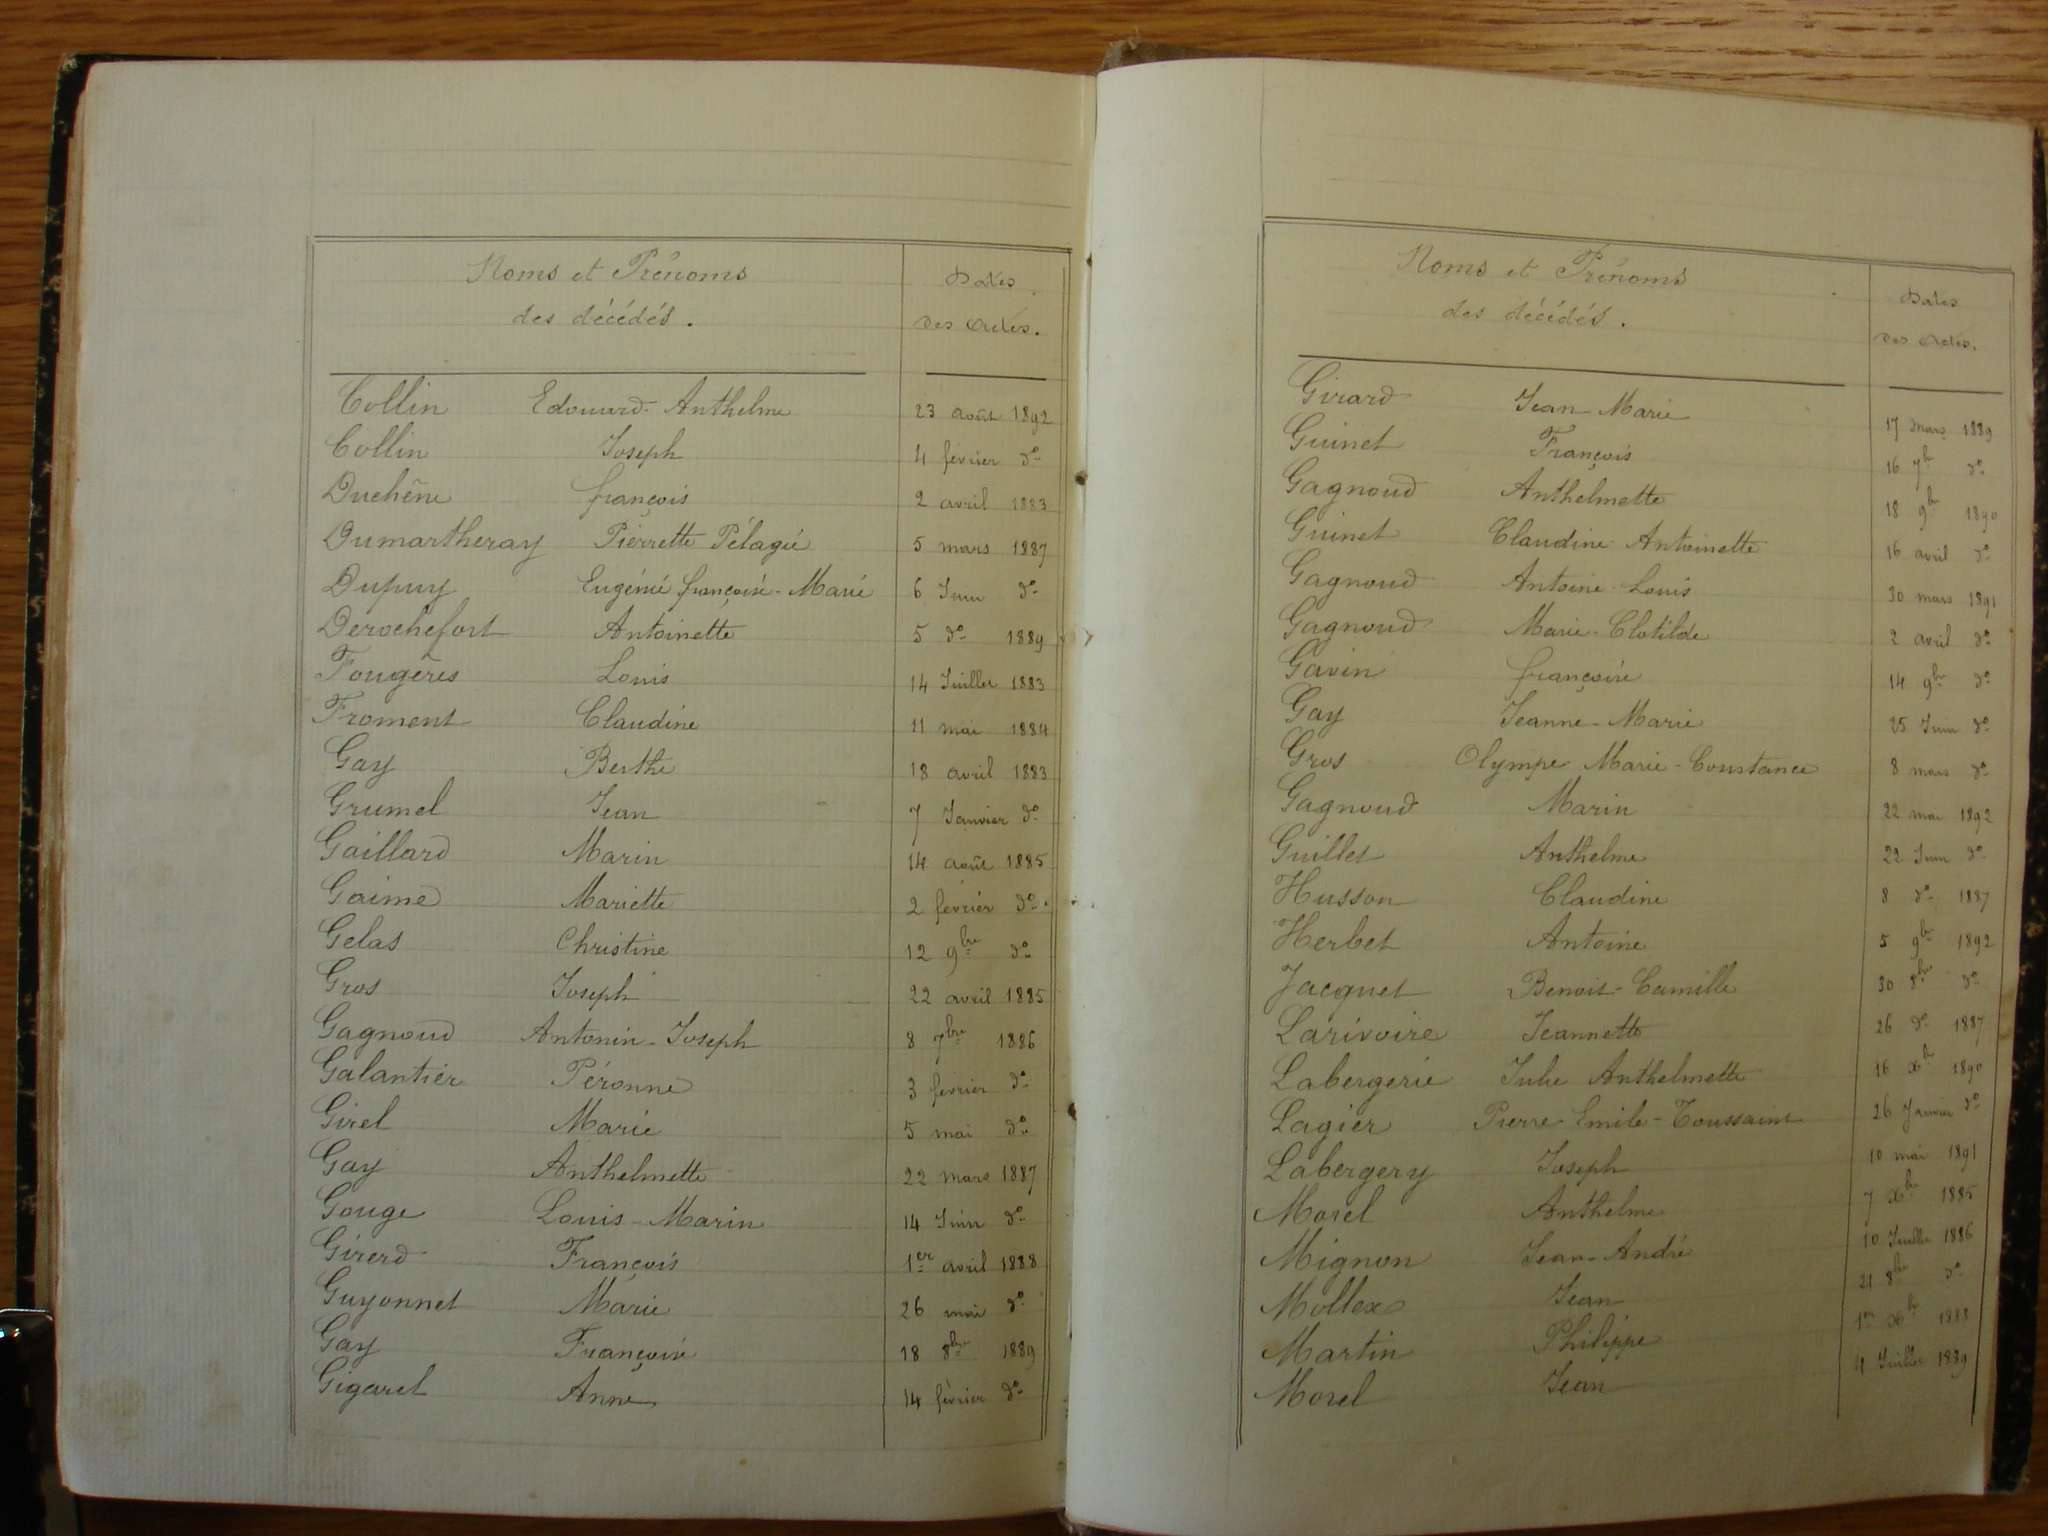 Noms et Prénoms Dates
des décédés. des actes.
Collin Edouard-Anthelme 23 août 1892
Collin Joseph 4 février do
Duchêne françois 2 avril 1883
Dumartheray Pierrette Pélagie 5 mars 1887
Dupuy Eugénie françoise-Marie 6 Juin do
Derochefort Antoinette 5 do 1889
Fougères Louis 14 Juillet 1883
Froment Claudine 11 mai 1884
Gay Berthe 18 avril 1883
Grumel Jean 7 Janvier do
Gaillard Marin 14 août 1885
Gaime Mariette 2 février do
Gelas Christine 12 9bre do
Gros Joseph 22 avril 1885
Gagnoud Antonin-Joseph 8 7bre 1886
Galantier Péronne 3 février do
Girel Marie 5 mai do
Gay Anthelmette 22 mars 1887
Gouge Louis-Marin 14 Juin do
Girerd François 1er avril 1888
Guyonnet Marie 26 mai do
Gay Françoise 18 8bre 1889
Gigarel Anne 14 février do
Noms et Prénoms Dates
des décédés. des actes.
Girard Jean Marie 17 mars 1889
Guinet François 16 7b do
Gagnoud Anthelmette 18 9bre 1890
Guinet Claudine Antoinette 16 avril do
Gagnoud Antoine-Louis 30 mars 1891
Gagnoud Marie-Clotilde 2 avril do
Gavin françoise 14 9bre do
Gay Jeanne-Marie 25 Juin do
Gros Olympe Marie-Constance 8 mars do
Gagnoud Marin 22 mai 1892
Guillet Anthelme 22 Juin do
Husson Claudine 8 do 1887
Herbet Antoine 5 9bre 1892
Jacquet Benoit-Camille 30 8bre do
Larivoire Jeannette 26 do 1887
Labergerie Julie Anthelmette 16 xbre 1890
Lagier Pierre Emile-Toussaint 26 Janvier do
Labergery Joseph 10 mai 1891
Morel Anthelme 7 xbre 1885
Mignon Jean-André 10 Juillet 1886
Mollex Jean 21 8bre do
Martin Philippe 1er xbre 1888
Morel Jean 4 Juillet 1889